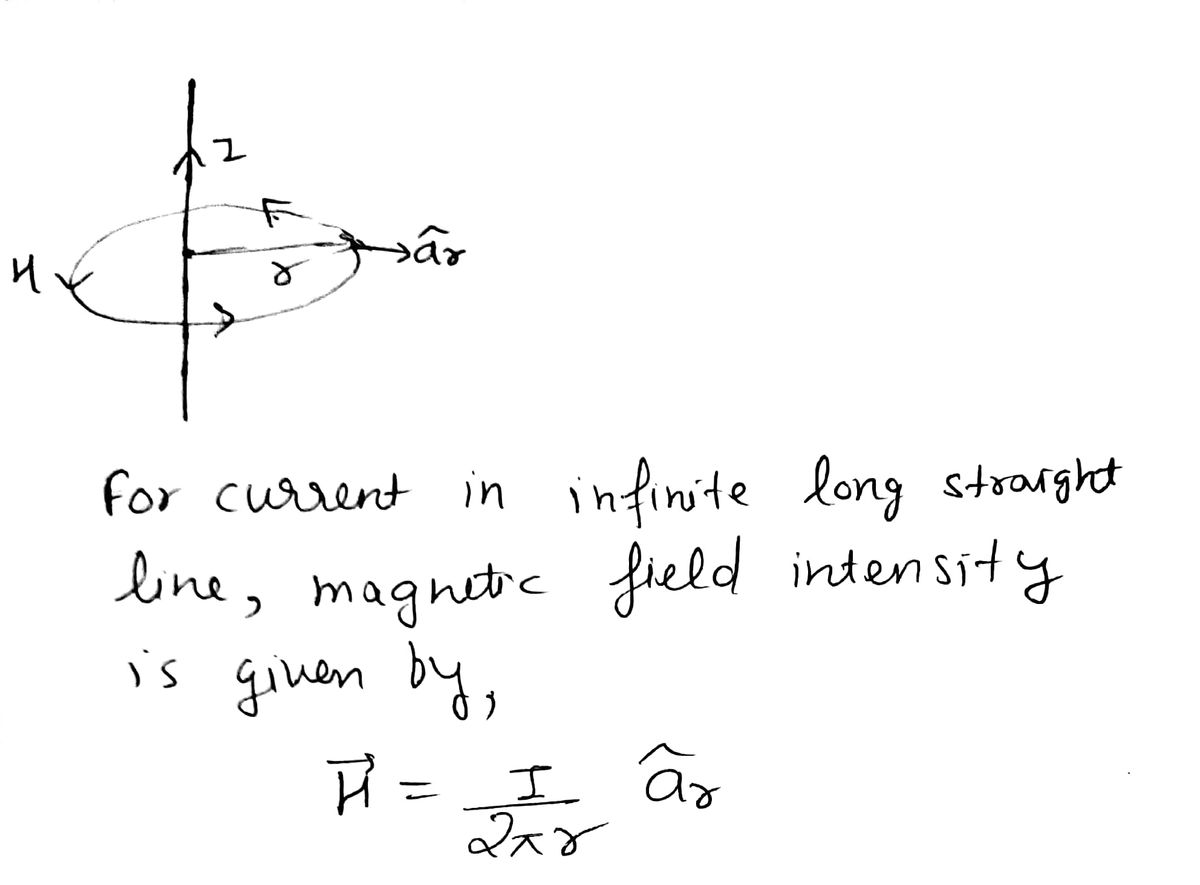 I
F
H
r
âr
For current in infinite long straight
line, magnetic field intensity
is given by,
H⃗ = I/2πr âr